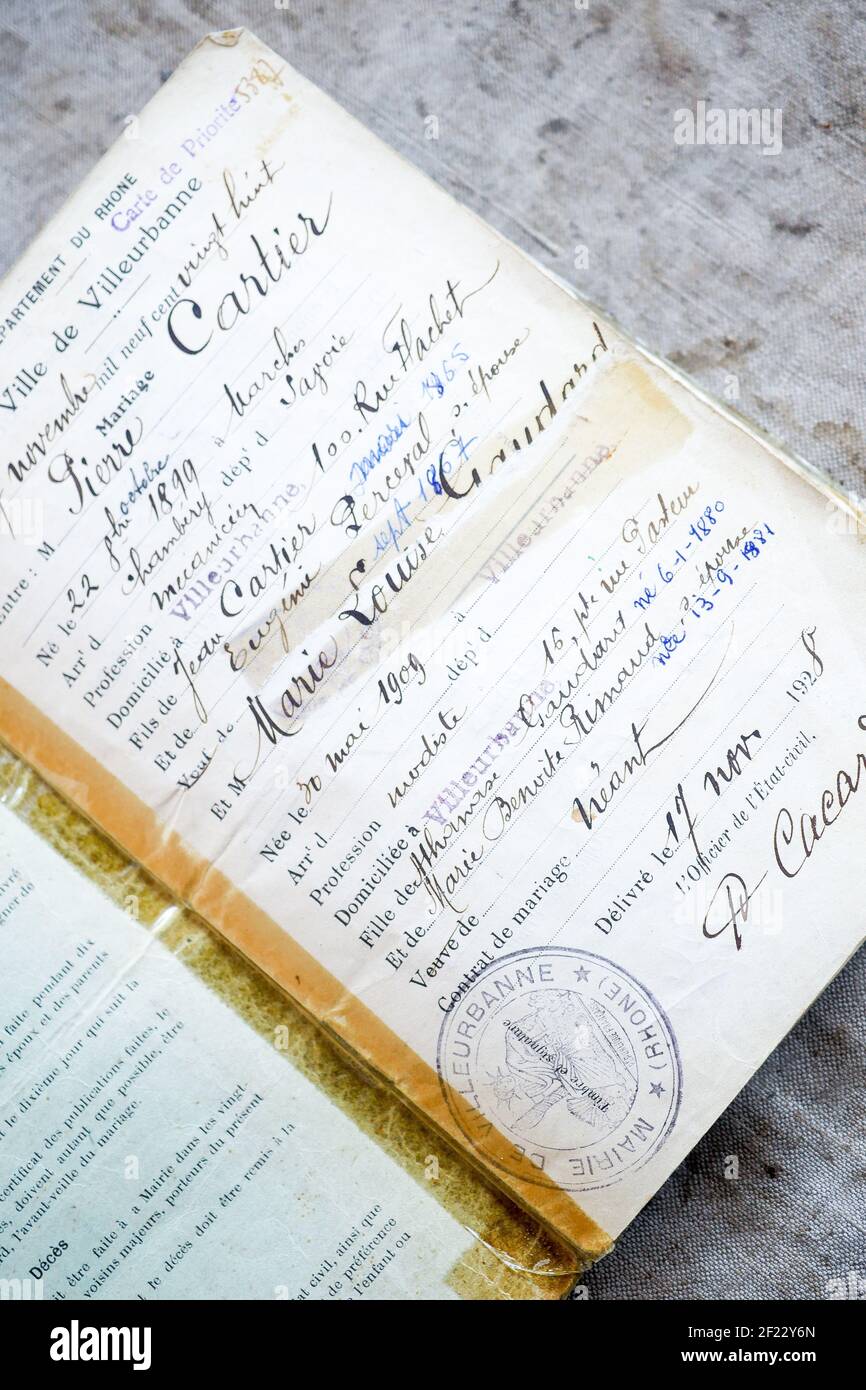 DÉPARTEMENT DU RHONE
Carte de Priorité 5387
Ville de Villeurbanne
novembre mil neuf cent vingt huit
Mariage
Entre : M Cartier
Pierre
Né le 22 octobre 1899 à Marches
Arr' d Chambéry dép' d Savoie
Profession mécanicien
Domicilié à Villeurbanne, 100. Rue Flachet
Fils de Jean Cartier 1865
Et de Eugénie Perceval s. épouse
sept 1867
Veuf de
Et M Gaudard
Marie Louise
Née le 30 mai 1909 à Villeurbanne
Arr' d dép' d
Profession modiste
Domiciliée à Villeurbanne 16, pte rue Pasteur
Fille de Athanase Gaudard né 6-1-1880
Et de Marie Benoite Rimaud s. épouse
née 13-9-1881
Veuve de
Contrat de mariage néant
Délivré le 17 nov 1928
L'Officier de l'État-civil,
MAIRIE DE VILLEURBANNE
(RHONE)
Timbre et signature
faite pendant dix
époux et des parents
le dixième jour qui suit la
certificat des publications faites, le
doivent autant que possible, être
l'avant-veille du mariage.
Décès
être faite à a Mairie dans les vingt-
voisins majeurs, porteurs du présent
le décès doit être remis à la
état civil, ainsi que
de préférence
l'enfant ou
alamy
Image ID: 2F22Y6N
www.alamy.com